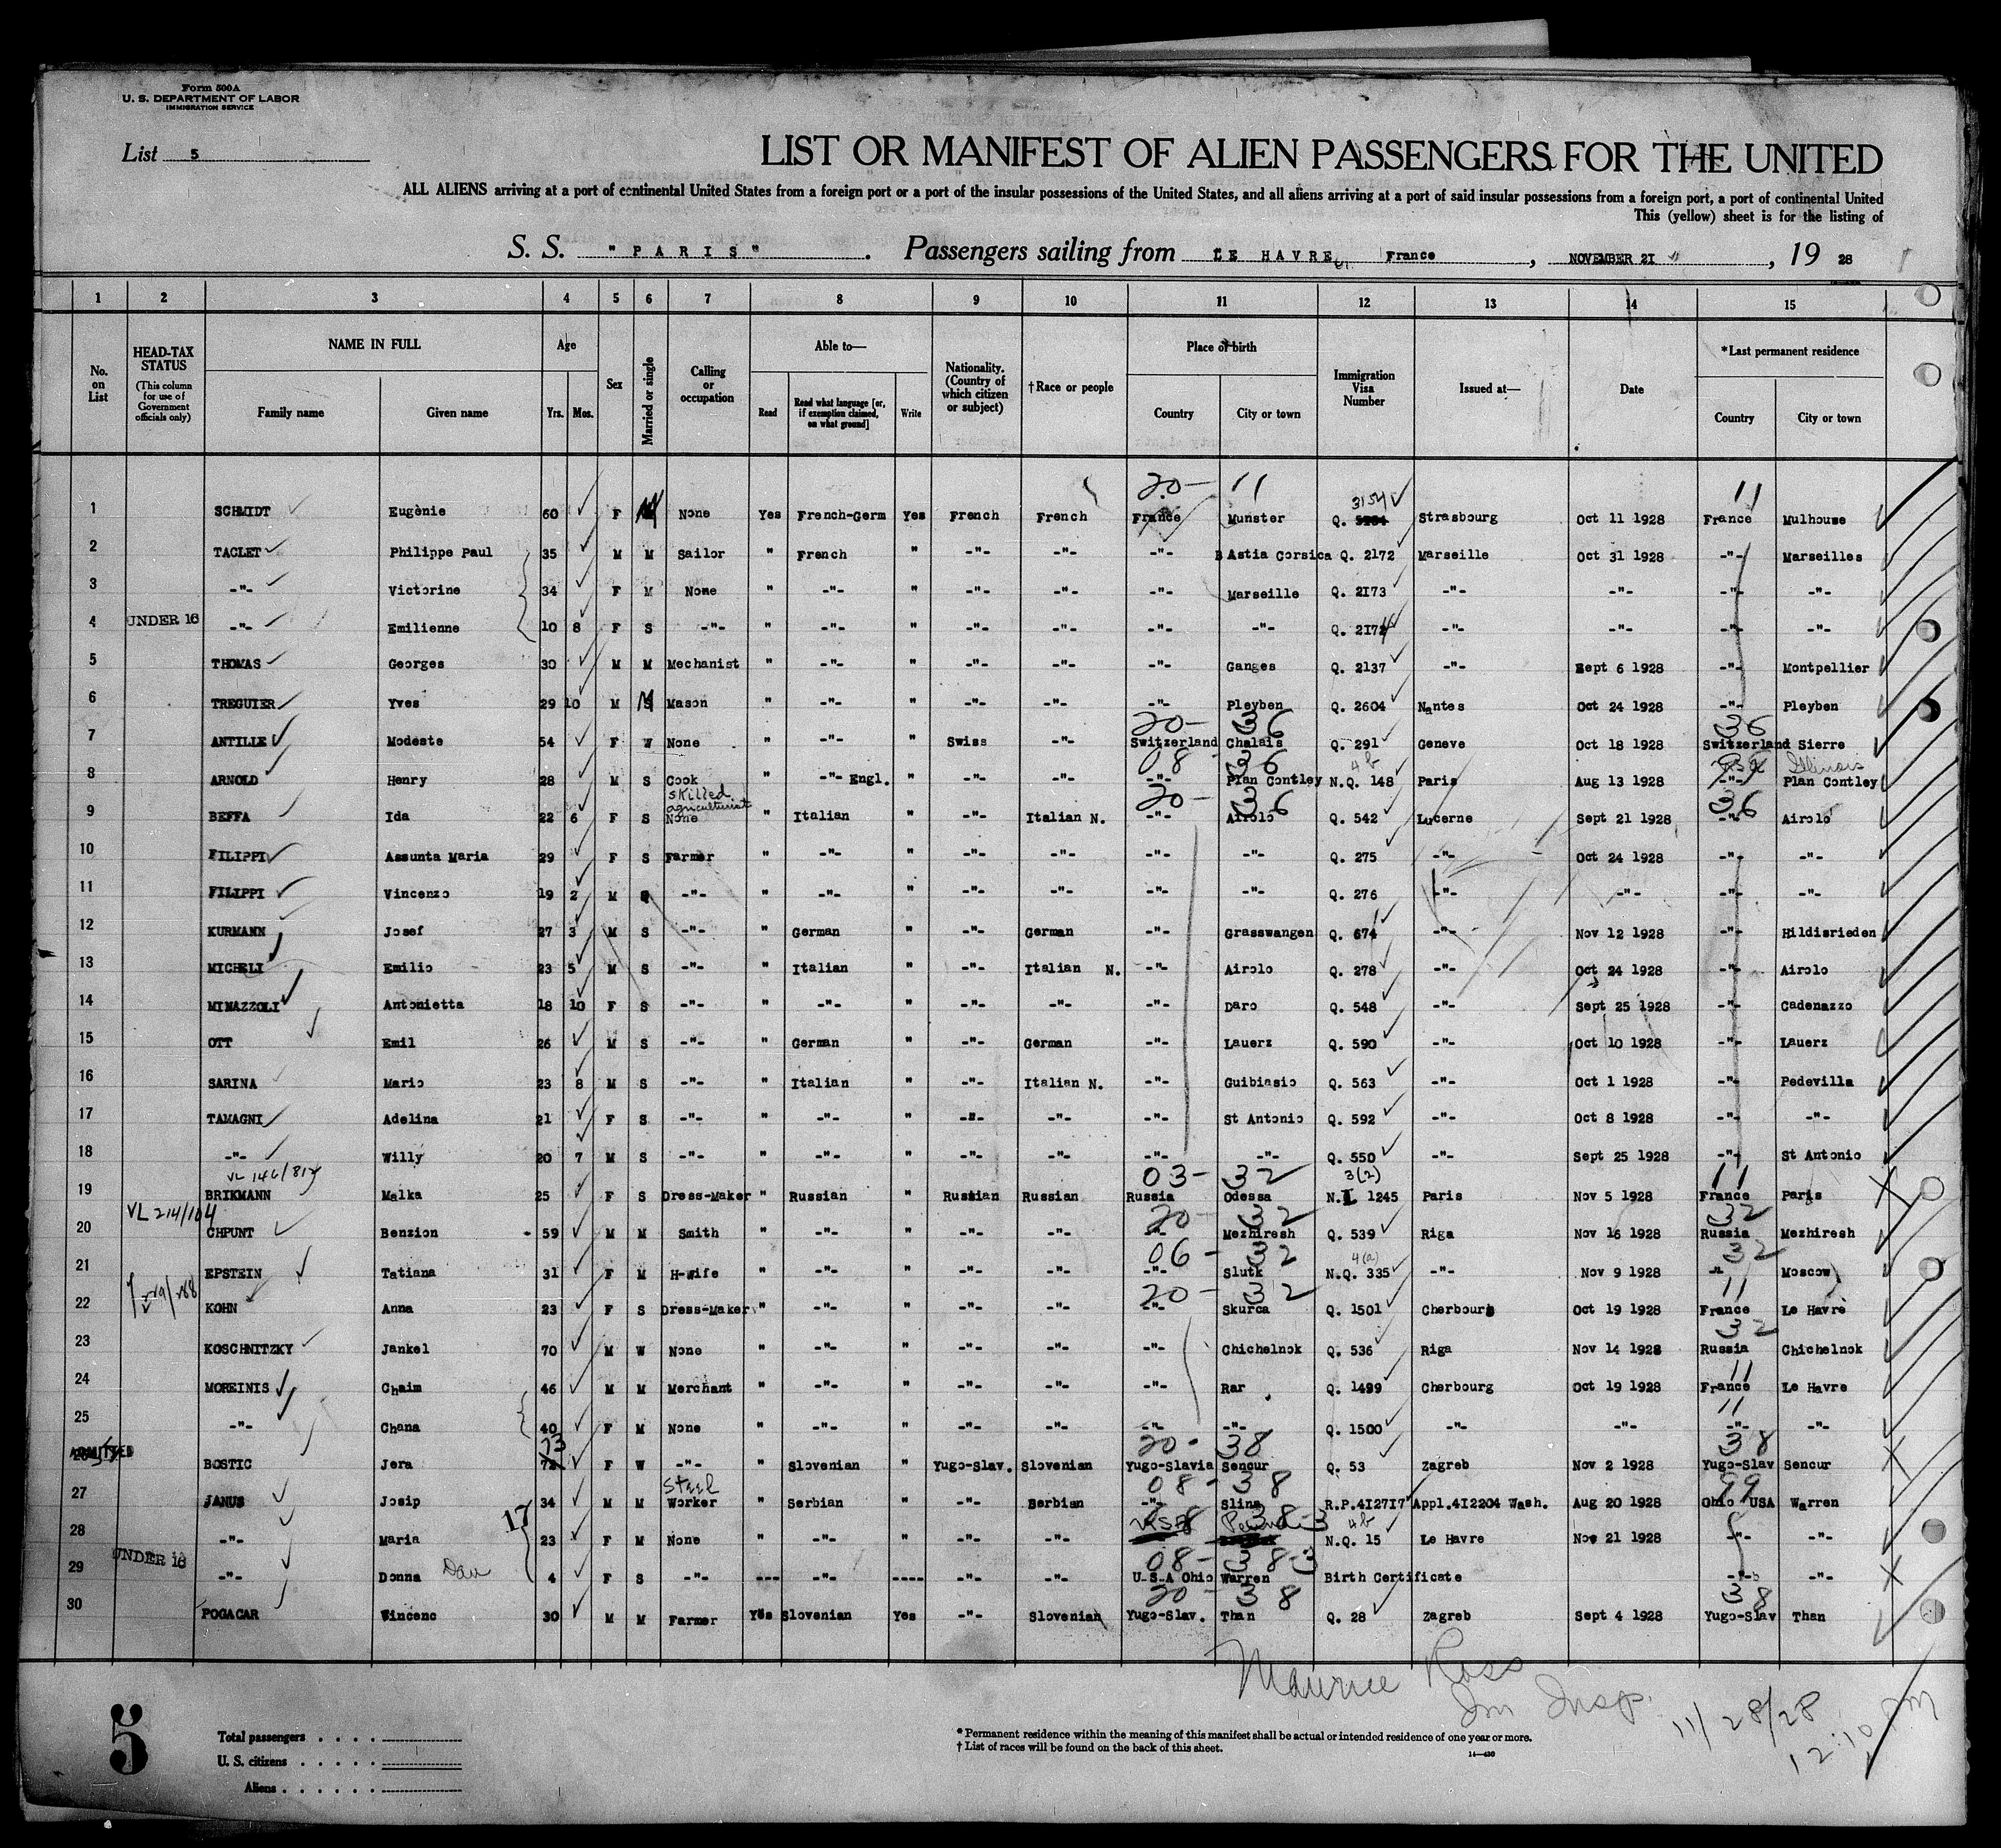 Form 500A
U. S. DEPARTMENT OF LABOR
IMMIGRATION SERVICE
List 5
LIST OR MANIFEST OF ALIEN PASSENGERS FOR THE UNITED
ALL ALIENS arriving at a port of continental United States from a foreign port or a port of the insular possessions of the United States, and all aliens arriving at a port of said insular possessions from a foreign port, a port of continental United
This (yellow) sheet is for the listing of
S. S. "PARIS" . Passengers sailing from LE HAVRE, France , NOVEMBER 21 , 19 28
1 2 3 4 5 6 7 8 9 10 11 12 13 14 15
No. on List HEAD-TAX STATUS (This column for use of Government officials only) NAME IN FULL Family name Given name Age Yrs. Mos. Sex Married or single Calling or occupation Able to— Read Read what language [or, if exemption claimed, on what ground] Write Nationality. (Country of which citizen or subject) †Race or people Place of birth Country City or town Immigration Visa Number Issued at— Date *Last permanent residence Country City or town
20- 11 3154 11
1 SCHMIDT Eugènie 60 F None Yes French-Germ Yes French French France Munster Q. Strasbourg Oct 11 1928 France Mulhouse
2 TACLET Philippe Paul 35 M M Sailor " French " -"- -"- -"- BAstia Corsica Q. 2172 Marseille Oct 31 1928 -"- Marseilles
3 -"- Victorine 34 F M None " -"- " -"- -"- -"- Marseille Q. 2173 -"- -"- -"- -"-
4 UNDER 16 -"- Emilienne 10 8 F S -"- " -"- " -"- -"- -"- -"- Q. 2174 -"- -"- -"- -"-
5 THOMAS Georges 30 M M Mechanist " -"- " -"- -"- -"- Ganges Q. 2137 -"- Sept 6 1928 -"- Montpellier
6 TREGUIER Yves 29 10 M M Mason " -"- " -"- -"- -"- Pleyben Q. 2604 Nantes Oct 24 1928 -"- Pleyben
20- 36 36
7 ANTILLE Modeste 54 F W None " -"- " Swiss -"- Switzerland Chalais Q. 291 Geneve Oct 18 1928 Switzerland Sierre
08- 36 4b 99 Illinois
8 ARNOLD Henry 28 M S Cook " -"- Engl. " -"- -"- -"- Plan Contley N.Q. 148 Paris Aug 13 1928 -"- Plan Contley
skilled agriculturist 20- 36 36
9 BEFFA Ida 22 6 F S None " Italian " -"- Italian N. -"- Airolo Q. 542 Lucerne Sept 21 1928 -"- Airolo
10 FILIPPI Assunta Maria 29 F S Farmer " -"- " -"- -"- -"- -"- Q. 275 -"- Oct 24 1928 -"- -"-
11 FILIPPI Vincenzo 19 2 M S -"- " -"- " -"- -"- -"- -"- Q. 276 -"- -"- -"- -"-
12 KURMANN Josef 27 3 M S -"- " German " -"- German -"- Grasswangen Q. 671 -"- Nov 12 1928 -"- Hildisrieden
13 MICHELI Emilio 23 5 M S -"- " Italian " -"- Italian N. -"- Airolo Q. 278 -"- Oct 24 1928 -"- Airolo
14 MINAZZOLI Antonietta 18 10 F S -"- " -"- " -"- -"- -"- Daro Q. 548 -"- Sept 25 1928 -"- Cadenazzo
15 OTT Emil 26 M S -"- " German " -"- German -"- Lauerz Q. 590 -"- Oct 10 1928 -"- Lauerz
16 SARINA Mario 23 8 M S -"- " Italian " -"- Italian N. -"- Guibiasio Q. 563 -"- Oct 1 1928 -"- Pedevilla
17 TAMAGNI Adelina 21 F S -"- " -"- " -"- -"- -"- St Antonio Q. 592 -"- Oct 8 1928 -"- -"-
18 -"- Willy 20 7 M S -"- " -"- " -"- -"- -"- -"- Q. 550 -"- Sept 25 1928 -"- St Antonio
03- 32 3(2) 11
19 BRIKMANN Malka 25 F S Dress-Maker " Russian " Russian Russian Russia Odessa N.I 1245 Paris Nov 5 1928 France Paris
VL 214/104 20- 32 32
20 CHPUNT Benzion 59 M M Smith " -"- " -"- -"- -"- Mezhiresh Q. 539 Riga Nov 16 1928 Russia Mezhiresh
06- 32 4(a) 32
21 EPSTEIN Tatiana 31 F M H-wife " -"- " -"- -"- -"- Slutk N.Q. 335 -"- Nov 9 1928 -"- Moscow
20- 32 11
22 KOHN Anna 23 F S Dress-Maker " -"- " -"- -"- -"- Skurca Q. 1501 Cherbourg Oct 19 1928 France Le Havre
32
23 KOSCHNITZKY Jankel 70 M W None " -"- " -"- -"- -"- Chichelnok Q. 536 Riga Nov 14 1928 Russia Chichelnok
11
24 MOREINIS Chaim 46 M M Merchant " -"- " -"- -"- -"- Rar Q. 1499 Cherbourg Oct 19 1928 France Le Havre
11
25 -"- Chana 40 F M None " -"- " -"- -"- -"- -"- Q. 1500 -"- -"- -"- -"-
ADMITTED 73 20- 38 38
BOSTIC Jera F W -"- " Slovenian " Yugo-Slav. Slovenian Yugo-Slavia Sencur Q. 53 Zagreb Nov 2 1928 Yugo-Slav Sencur
Steel 08- 38 99
27 JANUS Josip 34 M M Worker " Serbian " -"- Serbian -"- Slina R.P.412717 Appl.412204 Wash. Aug 20 1928 Ohio USA Warren
17 4b
28 -"- Maria 23 F M None " -"- " -"- -"- N.Q. 15 Le Havre Nov 21 1928 -"- -"-
UNDER 16 08- 38-3
29 -"- Donna 4 F S -"- --- -"- ---- -"- -"- U.S.A Ohio Warren Birth Certificate -"- -"-
20- 38 38
30 POGACAR Wincenc 30 M M Farmer Yes Slovenian Yes -"- Slovenian Yugo-Slav. Than Q. 28 Zagreb Sept 4 1928 Yugo-Slav Than
Maurice Ross
Im Insp. 11/28/28
12:10 PM
5
Total passengers
U. S. citizens
Aliens
* Permanent residence within the meaning of this manifest shall be actual or intended residence of one year or more.
† List of races will be found on the back of this sheet.
14—430